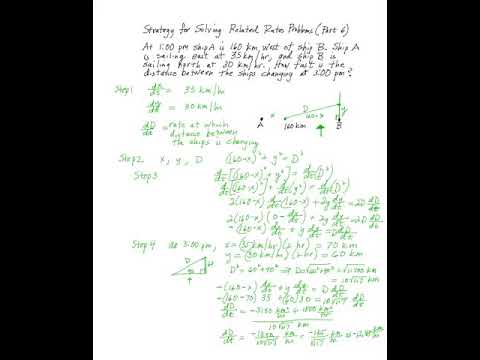 Strategy for Solving Related Rates Problems (Part 6)
At 1:00 pm ship A is 160 km west of ship B. Ship A
is sailing east at 35 km/hr, and ship B is
sailing north at 30 km/hr. How fast is the
distance between the ships changing at 3:00 pm?
Step 1 dx/dt = 35 km/hr
dy/dt = 30 km/hr
dD/dt = rate at which
distance between
the ships is changing
A x D 160-x y
160 km B
Step 2 x, y, D (160-x)² + y² = D²
Step 3 d/dt[(160-x)² + y²] = d/dt(D²)
d/dt[(160-x)²] + d/dt(y²) = d/dt(D²)
2(160-x) d/dt(160-x) + 2y dy/dt = 2D dD/dt
2(160-x)(0 - dx/dt) + 2y dy/dt = 2D dD/dt
-(160-x) dx/dt + y dy/dt = D dD/dt
Step 4 at 3:00 pm, x = (35 km/hr)(2 hr) = 70 km
y = (30 km/hr)(2 hr) = 60 km
D² = 60² + 90² ⇒ D = √60²+90² = √11700 km
= 10√117 km
-(160-x) dx/dt + y dy/dt = D dD/dt
-(160-70) 35 + (60) 30 = 10√117 dD/dt
dD/dt = -3150 km²/hr + 1800 km²/hr
10√117 km